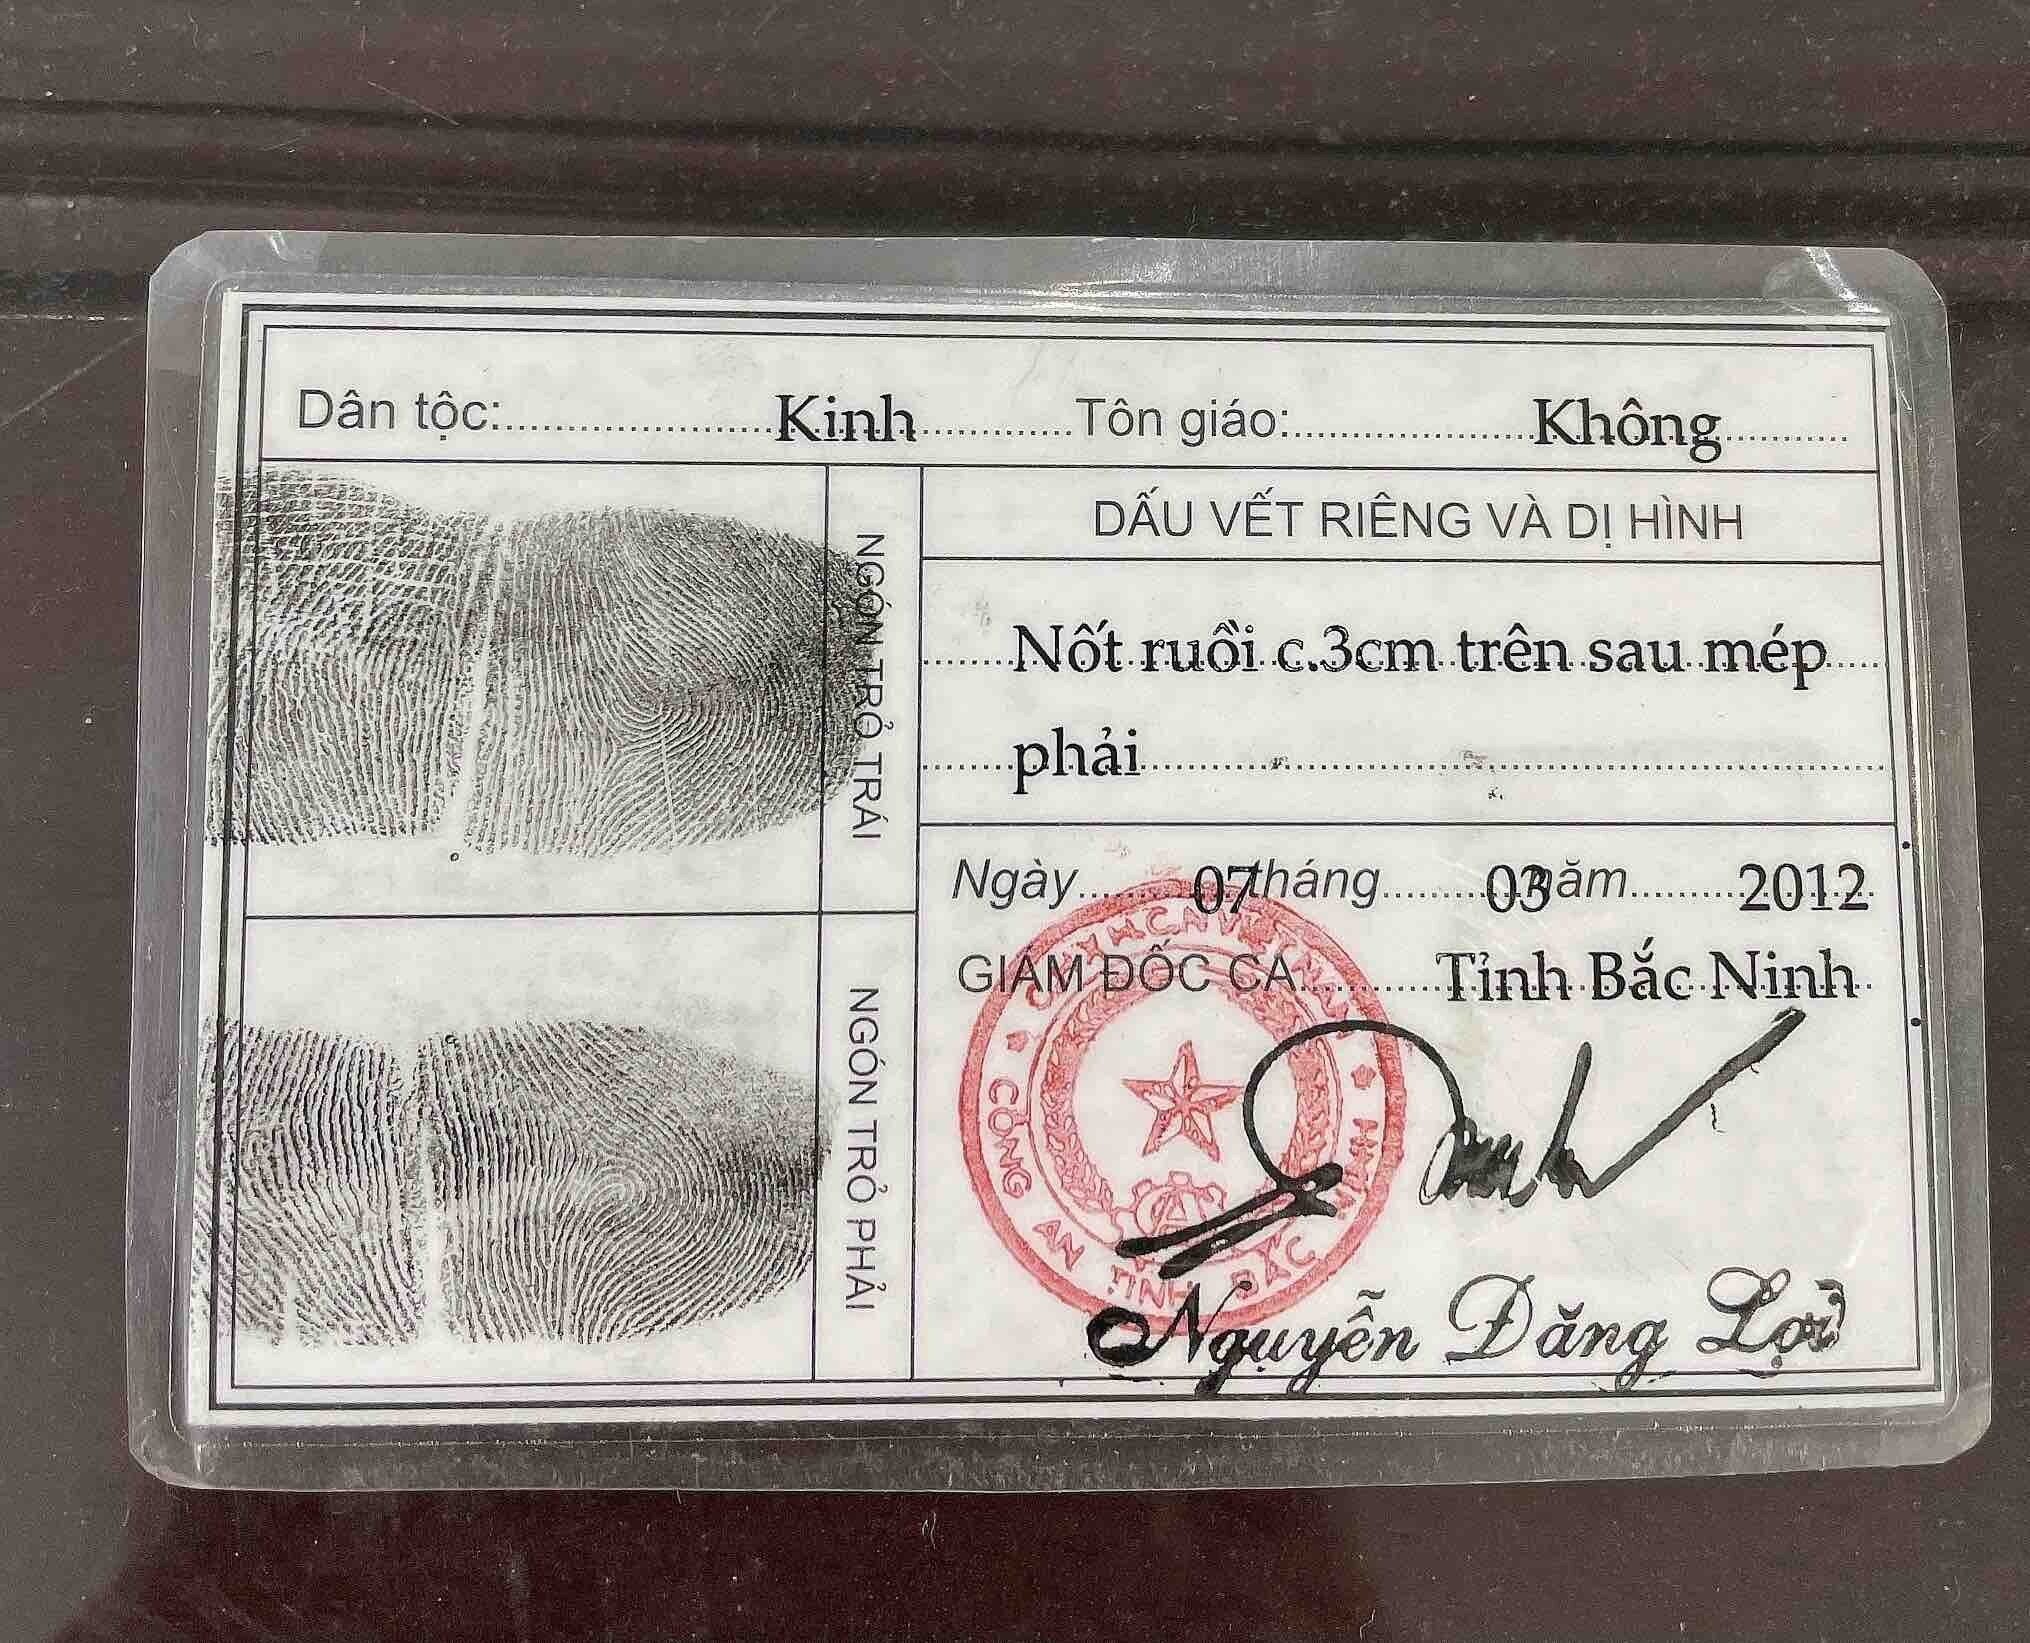 Dân tộc: Kinh Tôn giáo: Không
NGÓN TRỎ TRÁI
NGÓN TRỎ PHẢI
DẤU VẾT RIÊNG VÀ DỊ HÌNH
Nốt ruồi c.3cm trên sau mép
phải
Ngày 07 tháng 03 năm 2012
GIÁM ĐỐC CA Tỉnh Bắc Ninh
CÔNG AN TỈNH BẮC NINH
Nguyễn Đăng Lợi